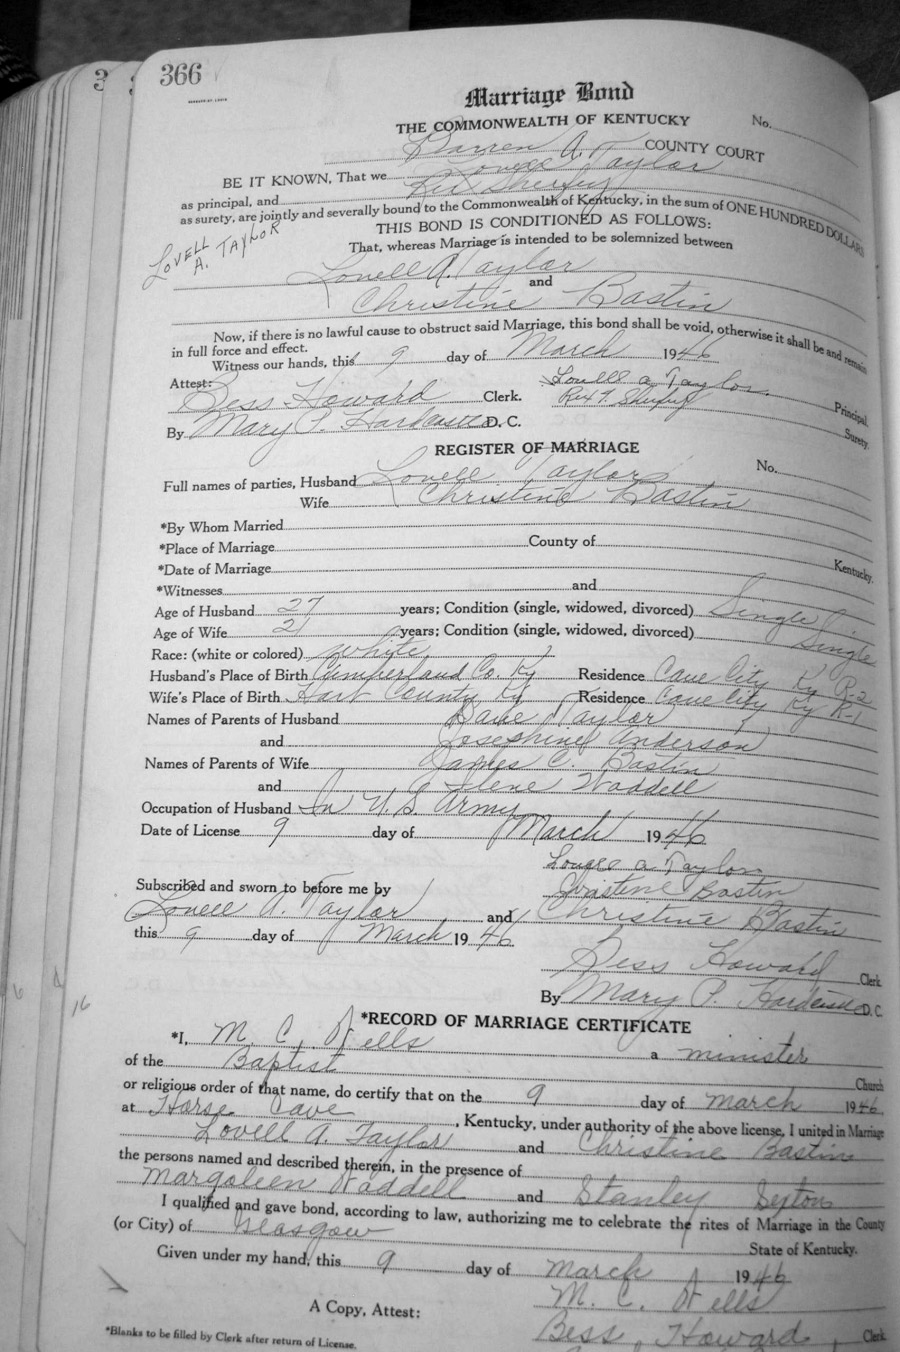 366
Marriage Bond
THE COMMONWEALTH OF KENTUCKY No.
Barren COUNTY COURT
BE IT KNOWN, That we Lovell A. Taylor
as principal, and Rex Shirley
as surety, are jointly and severally bound to the Commonwealth of Kentucky, in the sum of ONE HUNDRED DOLLARS
THIS BOND IS CONDITIONED AS FOLLOWS:
LOVELL
A. TAYLOR
That, whereas Marriage is intended to be solemnized between
Lovell A. Taylor
and
Christine Bastin
Now, if there is no lawful cause to obstruct said Marriage, this bond shall be void, otherwise it shall be and remain
in full force and effect.
Witness our hands, this 9 day of March 1946
Attest: Lovell A Taylor Principal,
Bess Howard Clerk. Rex T. Shirley Surety.
By Mary P. D. C.
REGISTER OF MARRIAGE
No.
Full names of parties, Husband Lovell Taylor
Wife Christine Bastin
*By Whom Married
*Place of Marriage County of Kentucky.
*Date of Marriage
*Witnesses and
Age of Husband 27 years; Condition (single, widowed, divorced) Single
Age of Wife 21 years; Condition (single, widowed, divorced) Single
Race: (white or colored) white
Husband's Place of Birth Cumberland Co. Ky Residence Cave City Ky R-2
Wife's Place of Birth Hart County Ky Residence Cave City Ky R-1
Names of Parents of Husband Dave Taylor
and Josephine Anderson
Names of Parents of Wife James C. Bastin
and Ilene Waddell
Occupation of Husband In U.S. Army
Date of License 9 day of March 1946
Lovell A Taylor
Christine Bastin
Subscribed and sworn to before me by
Lovell A. Taylor and Christine Bastin
this 9 day of March 1946
Bess Howard Clerk
By Mary P. D. C.
16
*RECORD OF MARRIAGE CERTIFICATE
*I, M. C. Wells a minister
of the Baptist Church
or religious order of that name, do certify that on the 9 day of March 1946
at Horse Cave, Kentucky, under authority of the above license, I united in Marriage
Lovell A. Taylor and Christine Bastin
the persons named and described therein, in the presence of
Margaleen Waddell and Stanley Sexton
I qualified and gave bond, according to law, authorizing me to celebrate the rites of Marriage in the County
(or City) of Glasgow State of Kentucky.
Given under my hand, this 9 day of March 1946
M. C. Wells
A Copy, Attest: Bess Howard, Clerk
*Blanks to be filled by Clerk after return of License.